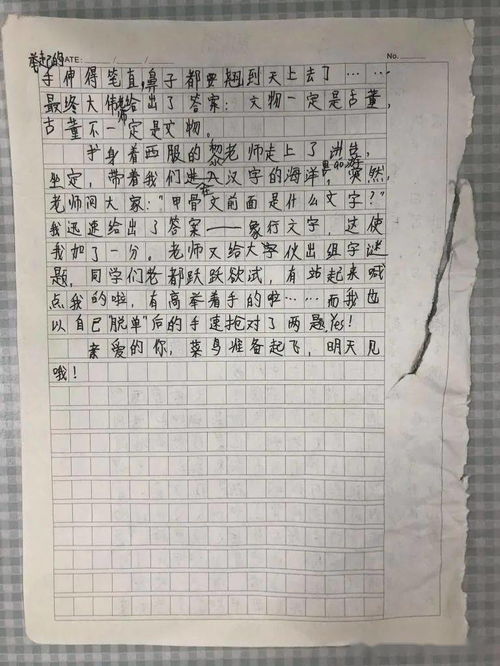 举起的
DATE: / / No.
手伸得笔直,鼻子都要翘到天上去了……
最终大伟老师给出了答案:文物一定是古董,
古董不一定是文物。
身着西服的黎老师走上了讲台,
坐定,带着我们进入在汉字的海洋里面游,突然,
老师问大家:"甲骨文前面是什么文字?"
我迅速给出了答案——象行文字,这使
我加了一分。老师又给大家伙出组字谜
题,同学们老都跃跃欲试,有站起来喊
点我的啦,有高举着手的啦……而我也
以自己"脱单"后的手速抢对了两题,Yes!
亲爱的你,菜鸟准备起飞,明天见
哦!